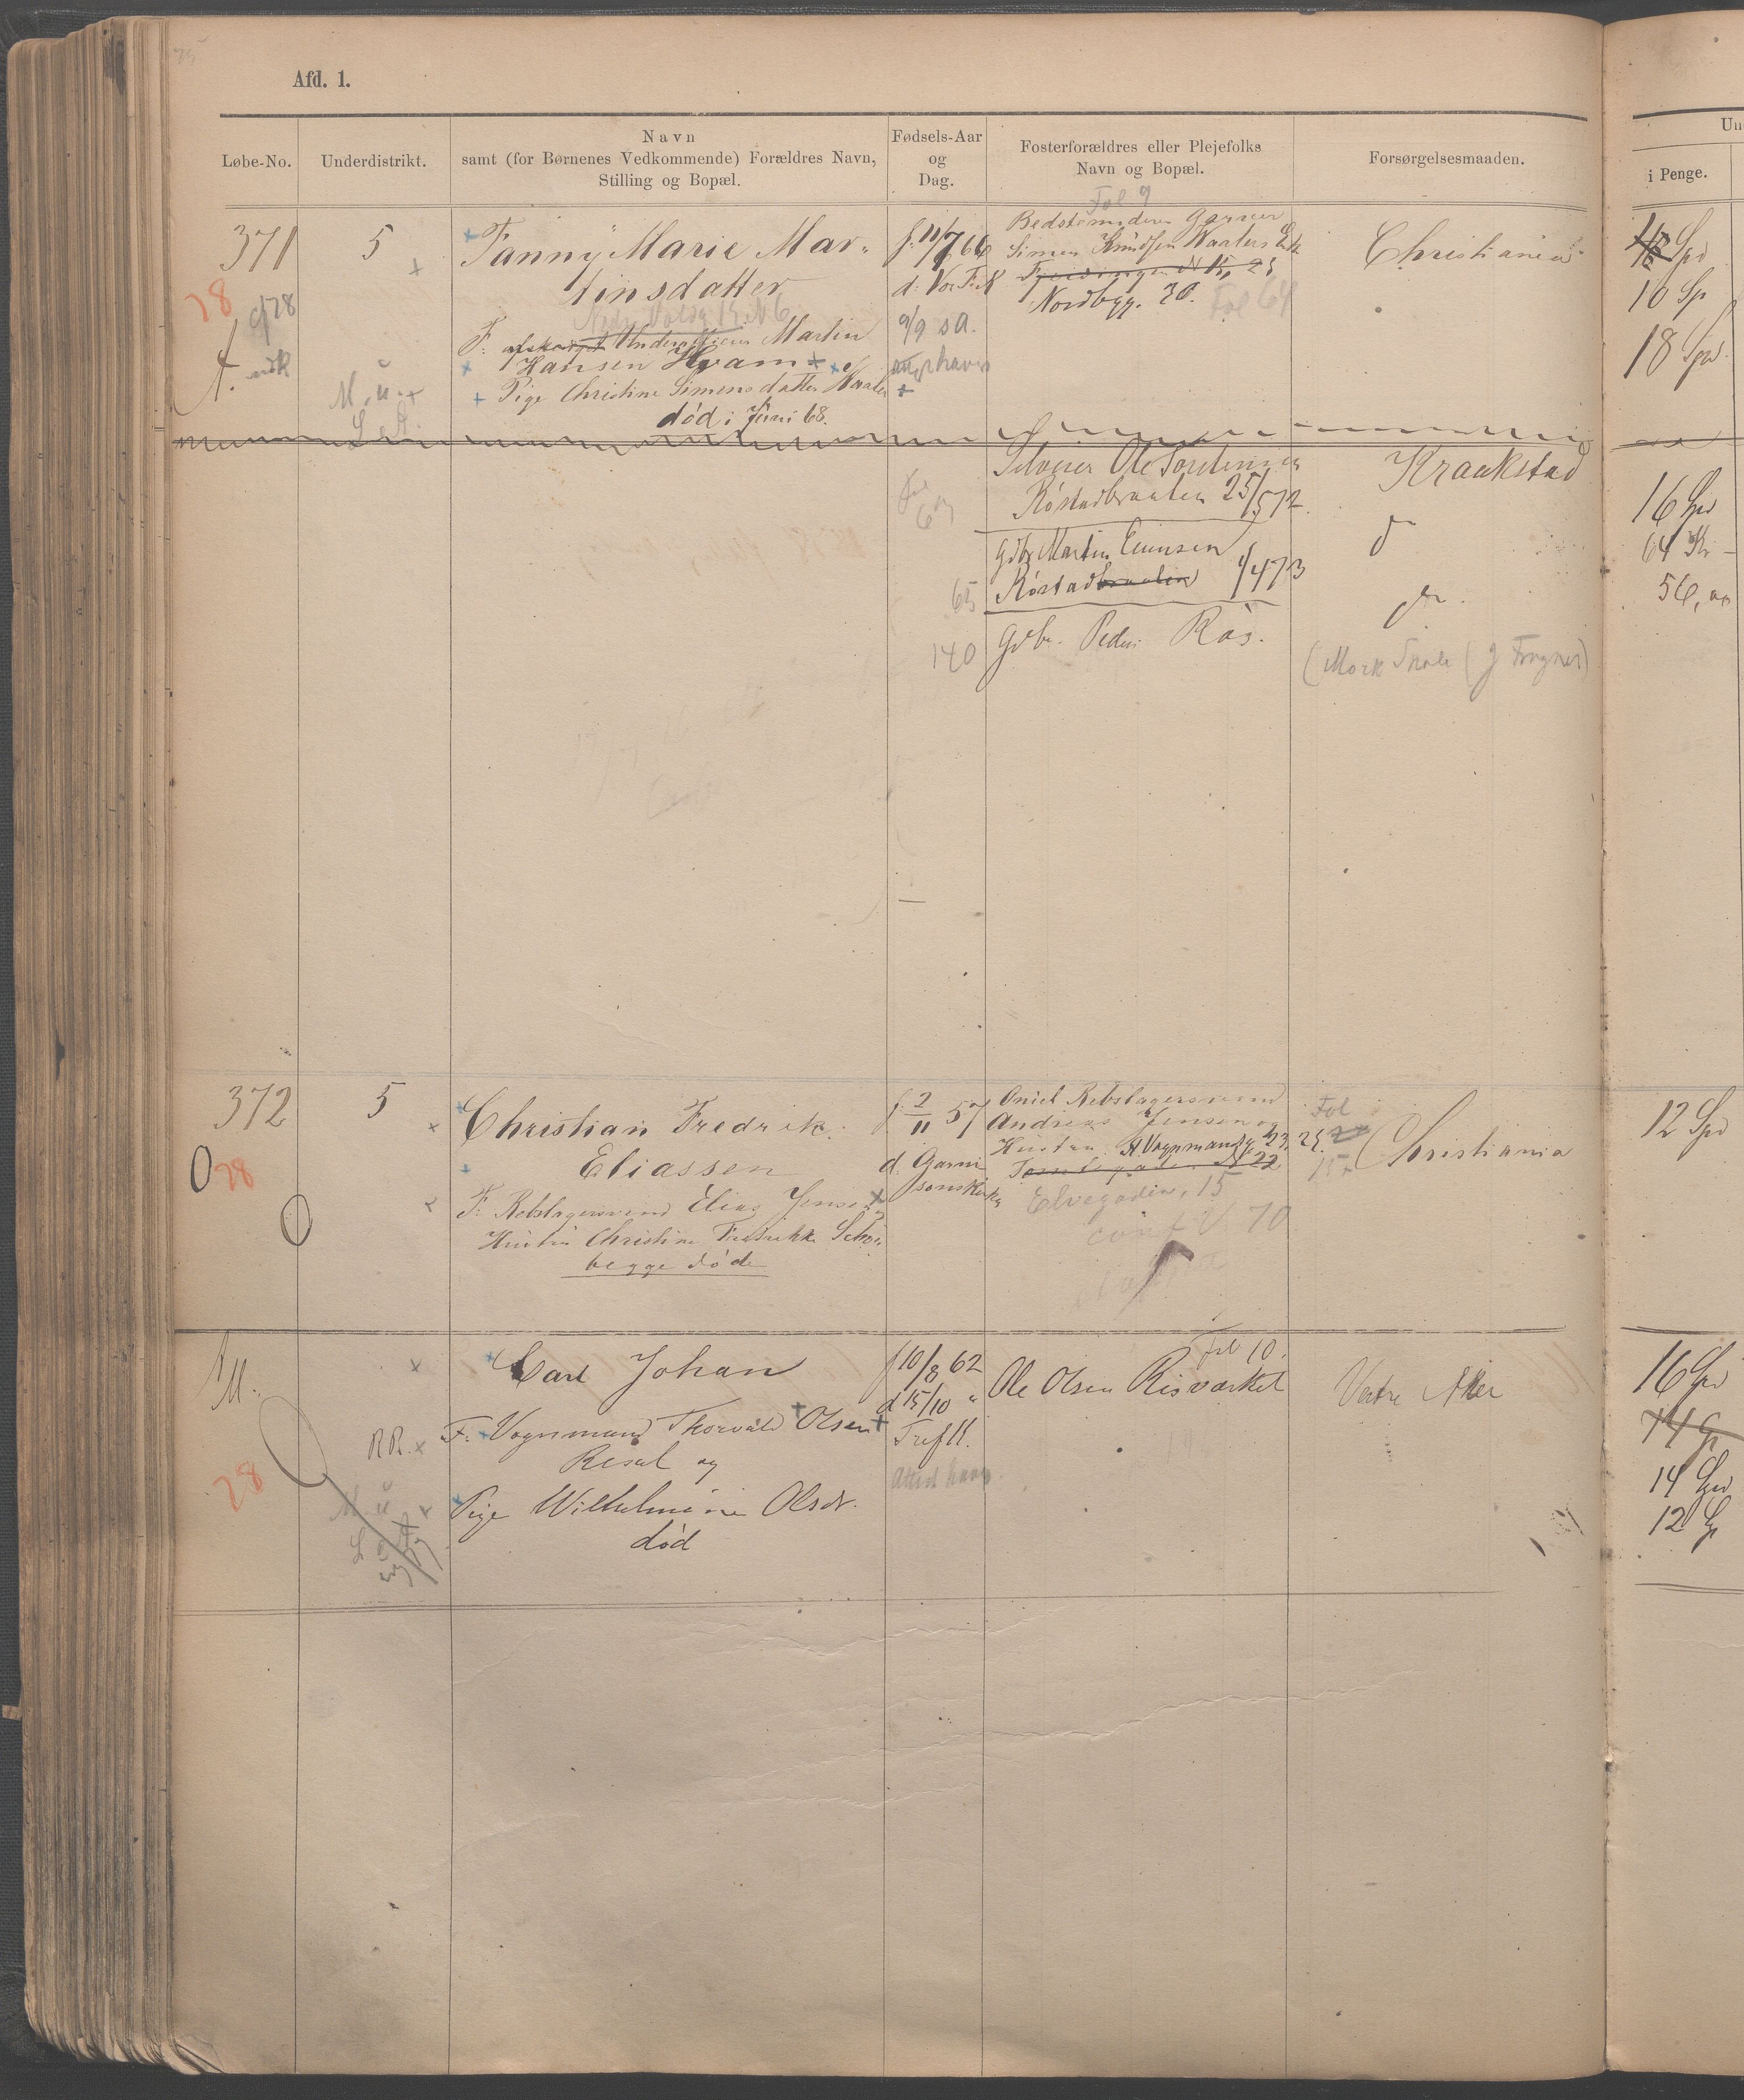 Afd. 1.
Løbe-No.
Underdistrikt.
Navn
samt (for Børnenes Vedkommende) Forældres Navn,
Stilling og Bopæl.
Fødsels-Aar
og
Dag.
Fosterforældres eller Plejefolks
Navn og Bopæl.
Forsørgelsesmaaden.
i Penge.
371
5
Fanny Marie Mar-
tinsdatter
F: afskediget Underofficier Martin
Hansen Hvam
Pige Christine Simensdatter Haaler
død i Juni 68.
f. 11/7 66
d. Vor Frels
9/9 s A.
Fol 9
Bedstemoderen
Simen Knudsen Haalers Enke
Nordbygg. 30.
Fol 64
Christiania
10 Sp
18 Spd.
28
M. u.
Selveier Ole Torstensen
Røstadbraaten 25/5 72.
Kraakstad
16 Spd
Gdbr Martin Enersen
Røstadbraaten 1/4 73
do
64 Kr
65
140
Gdbr. Peder Raas.
do
56,
(Mork Skole
372
5
Christian Fredrik
Eliassen
F: Rebslagersvend Elias Jensen
Hustru Christine Fredrikke
begge døde
f. 2/11 57
d. Garni
sonskirke
Onkel Rebslagersvend
Andreas Jensen og
Hustru St. Vognmandsg. 23.
Elvegaden, 15
conf. 70
Fol
Christiania
12 Spd
28
M.
RR.
Carl Johan
F. Vognmand Thorvald Olsen
Resal og
Pige Wilhelmine Olsdr.
død
f 10/8 62
d 15/10 "
Tref K.
Attest haves
fol 10.
Ole Olsen Risværket
Vestre Aker
16 Spd
14 Sp
14 Spd
12 Sp
28
M. u.